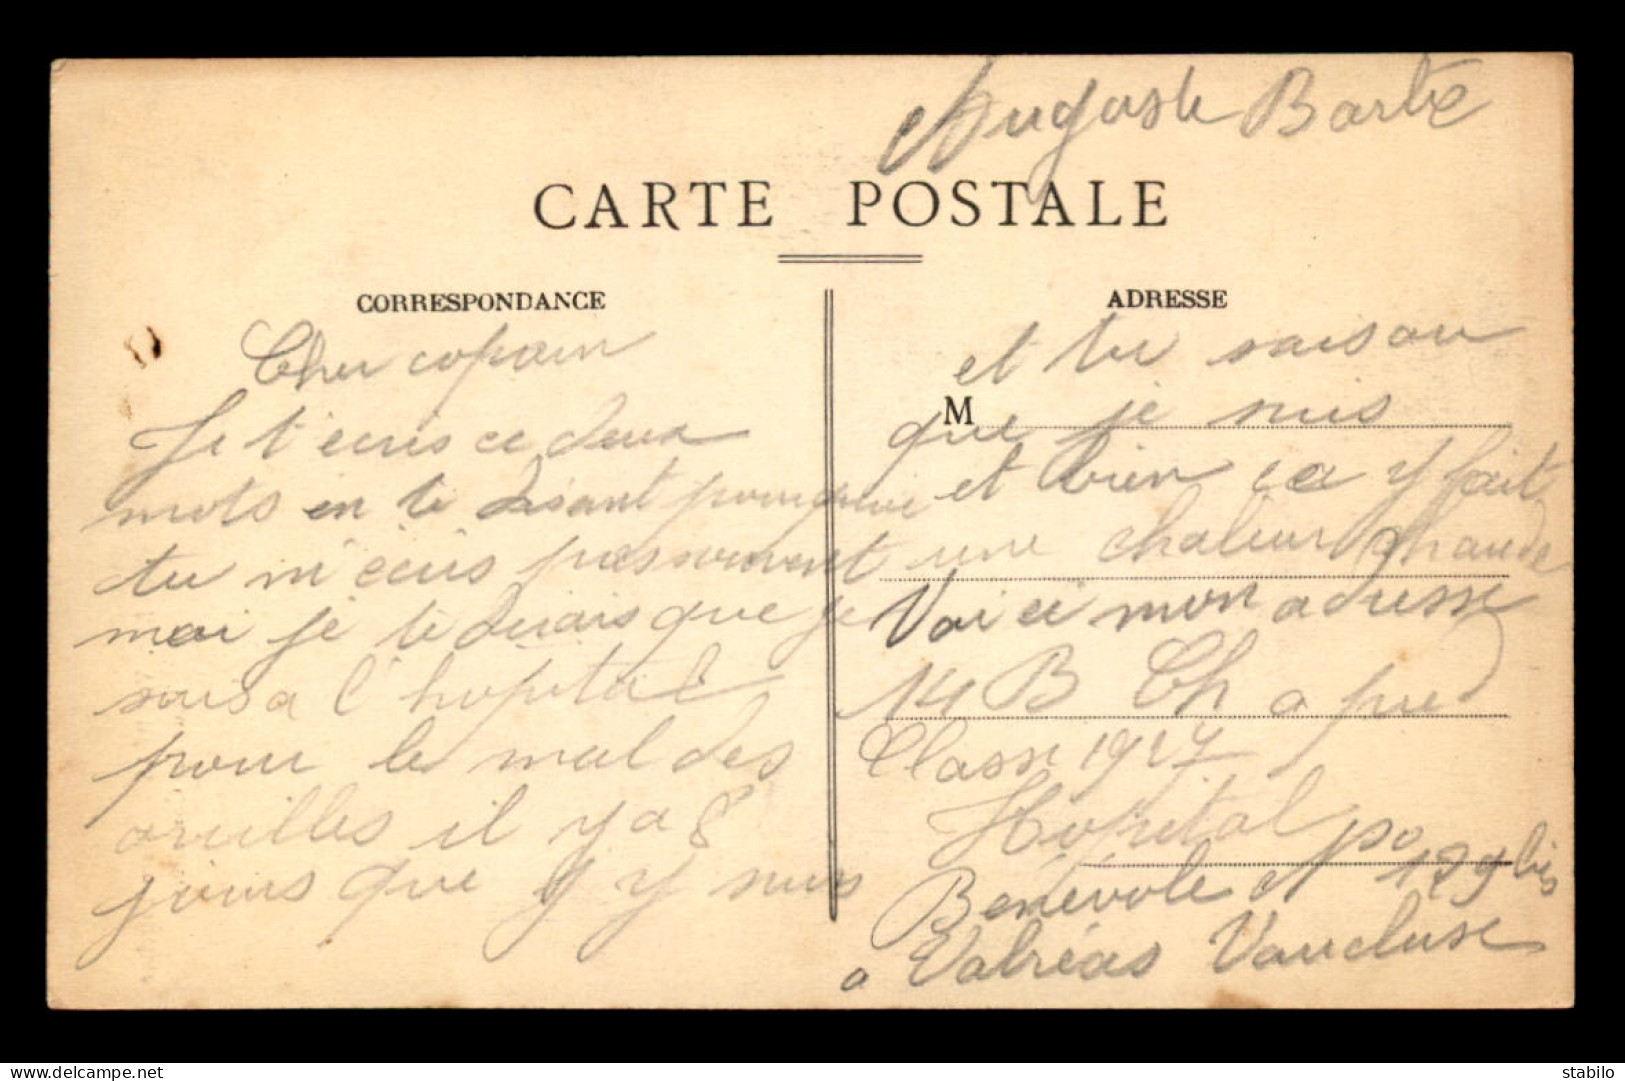 Auguste Barbe
CARTE POSTALE
CORRESPONDANCE
Cher copain
Je t'ecris ce deux
mots en te disant pourquoi
tu m'ecris pas souvent
moi je te dirais que je
suis a l'hopital
pour le mal des
oreilles il y a 8
jours que j y suis
ADRESSE
et tu sais ou
M que je suis
et bien ca y fait
une chaleur chaude
Voici mon adresse
14 B Ch a pied
Classe 1917
Hôpital
Bénévole No 129 bis
a Valréas Vaucluse
delcampe.net
stabilo